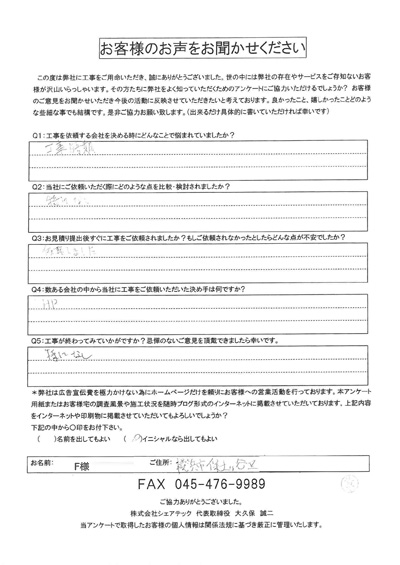 お客様のお声をお聞かせください
この度は弊社に工事をご用命いただき、誠にありがとうございました。世の中には弊社の存在やサービスをご存知ないお客
様が沢山いらっしゃいます。その方たちに弊社をよく知っていただくためのアンケートにご協力いただけるでしょうか? お客様
のご意見をお聞かせいただき今後の活動に反映させていただきたいと考えております。良かったこと、嬉しかったことどのよう
な些細な事でも結構です。是非ご協力お願い致します。(出来るだけ具体的に書いていただければ幸いです)
Q1:工事を依頼する会社を決める時にどんなことで悩まれていましたか?
Q2:当社にご依頼いただく際にどのような点を比較・検討されましたか?
特になし
Q3:お見積り提出後すぐに工事をご依頼されましたか?もしご依頼されなかったとしたらどんな点が不安でしたか?
依頼しました
Q4:数ある会社の中から当社に工事をご依頼いただいた決め手は何ですか?
HP
Q5:工事が終わってみていかがですか?忌憚のないご意見を頂戴できましたら幸いです。
特になし
*弊社は広告宣伝費を極力かけない為にホームページだけを頼りにお客様への営業活動を行っております。本アンケート
用紙またはお客様宅の調査風景や施工状況を随時ブログ形式のインターネットに掲載させていただいております、上記内容
をインターネットや印刷物に掲載させていただいてもよろしいでしょうか?
下記の中から〇印をお付下さい。
( )名前を出してもよい (〇)イニシャルなら出してもよい
お名前: F様 ご住所: 横浜市保土ヶ谷区
FAX 045-476-9989
ご協力ありがとうございました。
株式会社シェアテック 代表取締役 大久保 誠二
当アンケートで取得したお客様の個人情報は関係法規に基づき厳正に管理いたします。